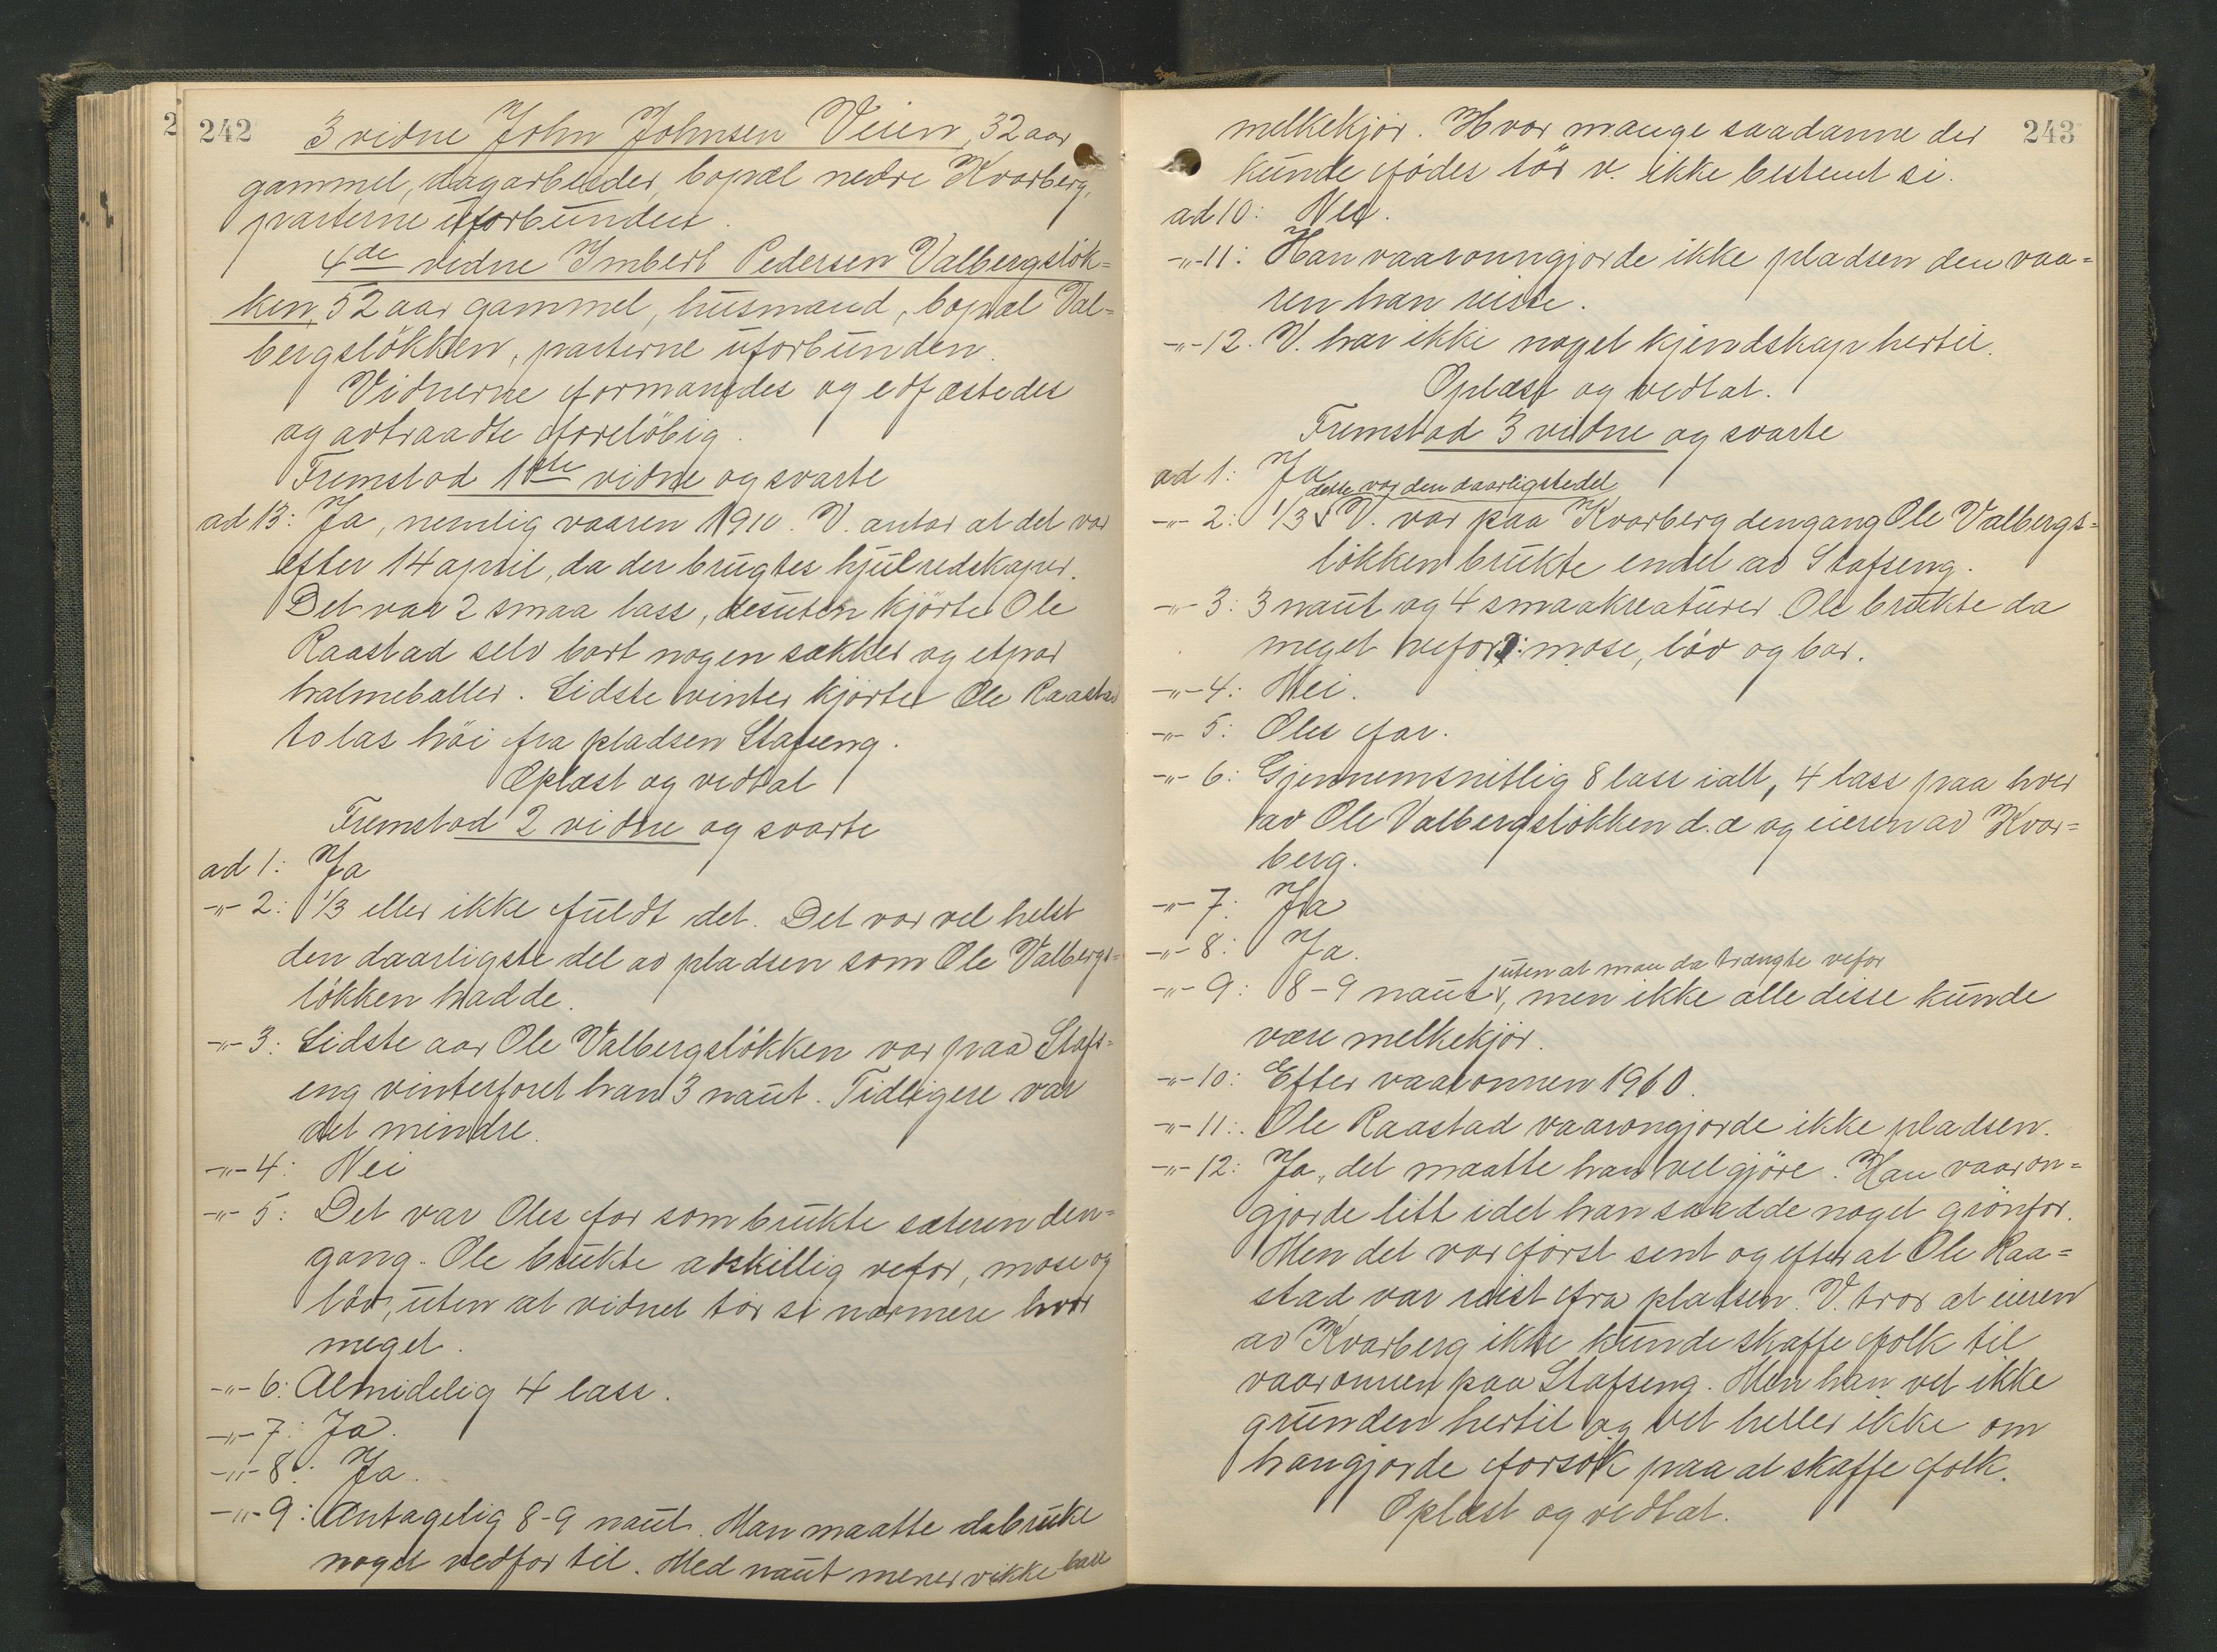 2
242
3 vidne John Johnsen Veien, 32 aar
gammel, dagarbeider, bopæl nedre Kvarberg,
parterne uforbunden.
4de vidne Imbert Pedersen Valbergsløk-
ken, 52 aar gammel, husmand, bopæl Val-
bergsløkken, parterne uforbunden.
Vidnerne formanedes og edfæstedes
og avtraadte foreløbig.
Fremstod 1ste vidne og svarte
ad 13: Ja, nemlig vaaren 1910. V. antar at det var
efter 14 april, da der brugtes hjulredskaper.
Det var 2 smaa lass, desuten kjørte Ole
Raastad selv bort nogen sækker og etpar
halmeballer. Sidste vinter kjørte Ole Raastad
to las høi fra pladsen Stafseng.
Oplæst og vedtat
Fremstod 2 vidne og svarte
ad 1: Ja
-"- 2: 1/3 eller ikke fuldt det. Det var vel helst
den daarligste del av pladsen som Ole Valbergs-
løkken hadde.
-"- 3: Sidste aar Ole Valbergsløkken var paa Stafs-
eng vinterforet han 3 naut. Tidligere var
det mindre.
-"- 4: Nei
-"- 5: Det var Oles far som brukte sæteren den-
gang. Ole brukte adskillig vefor, mose og
løv, uten at vidnet tør si nærmere hvor
meget.
-"- 6: Almidelig 4 lass.
-"- 7: Ja.
-"- 8: Ja.
-"- 9: Antagelig 8-9 naut. Man maatte da bruke
noget vedfor til. Med naut mener v ikke bare
243
melkekjør. Hvor mange saadanne der
kunde fødes tør v. ikke bestemt si.
ad 10: Nei.
-"- 11: Han vaaronngjorde ikke pladsen den vaa-
ren han reiste.
-"- 12. V. har ikke noget kjendskap hertil.
Oplæst og vedtat.
Fremstod 3 vidne og svarte
ad 1: Ja
dette var den daarligste del
-"- 2: 1/3 V. var paa Kvarberg dengang Ole Valbergs-
løkken brukte endel av Stafseng.
-"- 3: 3 naut og 4 smaakreaturer. Ole brukte da
meget vefor: mose, løv og bar.
-"- 4: Nei.
-"- 5: Oles far.
-"- 6: Gjennemsnitlig 8 lass ialt, 4 lass paa hver
av Ole Valbergsløkken d.æ og eieren av Kvar-
berg.
-"- 7: Ja
-"- 8: Ja.
uten at man da trængte vefor
-"- 9: 8-9 naut, men ikke alle disse kunde
være melkekjør.
-"- 10: Efter vaaronnen 1910.
-"- 11: Ole Raastad vaarongjorde ikke pladsen.
-"- 12: Ja, det maatte han vel gjøre. Han vaaron-
gjorde litt idet han saadde noget grønfor.
Men det var først sent og efter at Ole Raa-
stad var reist fra pladsen. V. tror at eieren
av Kvarberg ikke kunde skaffe folk til
vaaronnen paa Stafseng. Men han vet ikke
grunden hertil og vet heller ikke om
han gjorde forsøk paa at skaffe folk.
Oplæst og vedtat.